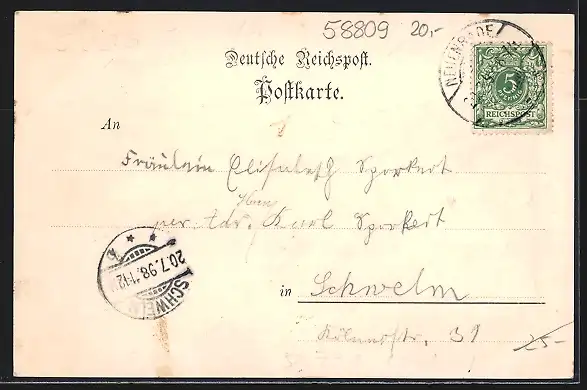 58809 20,-
Deutsche Reichspost.
Postkarte.
NEUENRADE
5
REICHSPOST
An
Fräulein Elisabeth Sporkert
Herrn
per Adr. Karl Sporkert
in Schwelm
Kölnerstr. 31
25-
20.7.98. 11-12
SCHWELM